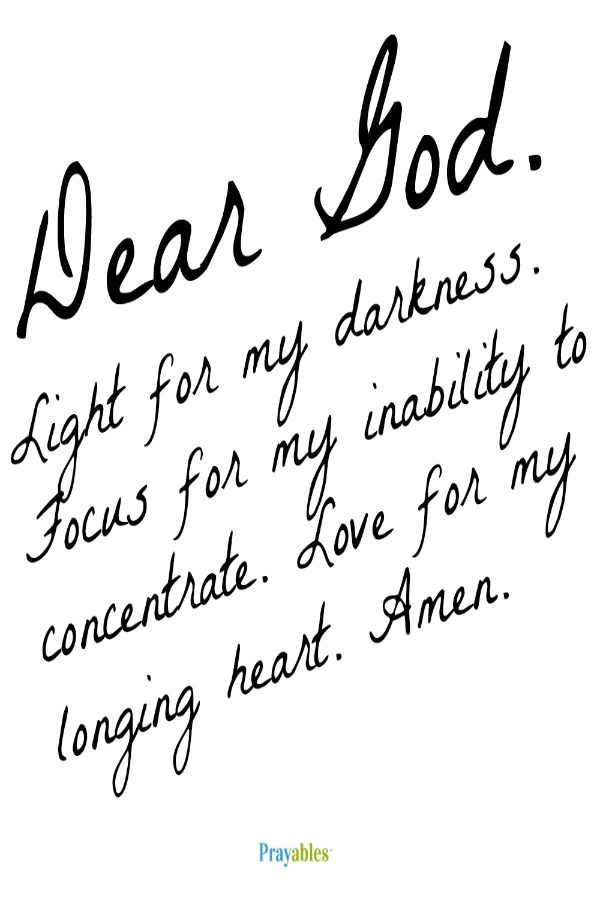 Dear God.
Light for my darkness.
Focus for my inability to
concentrate. Love for my
longing heart. Amen.
Prayables